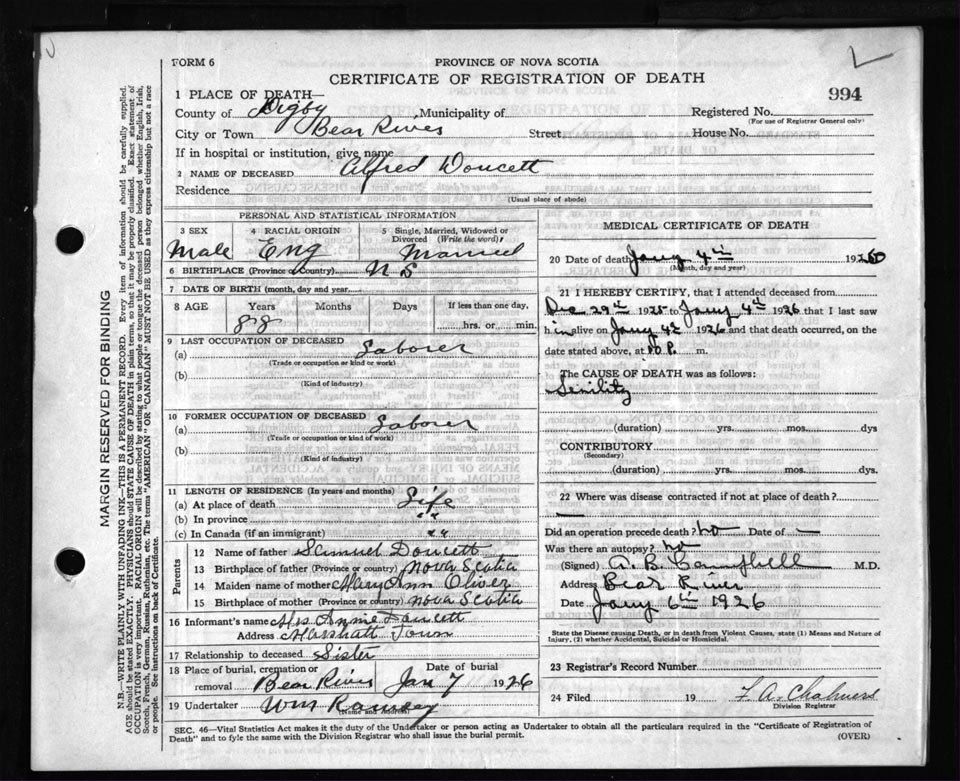 FORM 6
PROVINCE OF NOVA SCOTIA
CERTIFICATE OF REGISTRATION OF DEATH
994
1 PLACE OF DEATH—
County of Digby, Municipality of
Registered No.
(For use of Registrar General only)
City or Town Bear River Street House No.
If in hospital or institution, give name
2 NAME OF DECEASED Alfred Doucett
Residence
(Usual place of abode)
PERSONAL AND STATISTICAL INFORMATION
3 SEX
Male
4 RACIAL ORIGIN
Eng
5 Single, Married, Widowed or Divorced (Write the word)
Married
6 BIRTHPLACE (Province or Country) N S
7 DATE OF BIRTH (month, day and year)
8 AGE Years Months Days If less than one day,
88 hrs. or min.
9 LAST OCCUPATION OF DECEASED
(a) Laborer
(Trade or occupation or kind or work)
(b)
(Kind of industry)
10 FORMER OCCUPATION OF DECEASED
(a) Laborer
(Trade or occupation or kind of work)
(b)
(Kind of industry)
11 LENGTH OF RESIDENCE (In years and months)
(a) At place of death Life
(b) In province " "
(c) In Canada (if an immigrant) " "
Parents
12 Name of father Samuel Doucett
13 Birthplace of father (Province or country) Nova Scotia
14 Maiden name of mother Mary Ann Oliver
15 Birthplace of mother (Province or country) Nova Scotia
16 Informant's name Mrs Annie Doucett
Address Marshall Town
17 Relationship to deceased Sister
18 Place of burial, cremation or removal Bear River
Date of burial Jan 7 1926
19 Undertaker Wm Ramsey
(Name and Address)
MEDICAL CERTIFICATE OF DEATH
20 Date of death Jany 4th 1926
(Month, day and year)
21 I HEREBY CERTIFY, that I attended deceased from
Dec 29th 1925 to Jany 4th 1926 that I last saw
him alive on Jany 4th 1926 and that death occurred, on the
date stated above, at 10 P. m.
The CAUSE OF DEATH was as follows:
Senility
(duration) yrs. mos. dys
CONTRIBUTORY
(Secondary)
(duration) yrs. mos. dys.
22 Where was disease contracted if not at place of death?
—
Did an operation precede death? no Date of —
Was there an autopsy? no
(Signed) A. B. Campbell M.D.
Address Bear River
Date Jany 6th 1926
State the Disease causing Death, or in death from Violent Causes, state (1) Means and Nature of
Injury, (2) whether Accidental, Suicidal or Homicidal.
23 Registrar's Record Number
24 Filed 19 F. A. Chalmers
Division Registrar
SEC. 46—Vital Statistics Act makes it the duty of the Undertaker or person acting as Undertaker to obtain all the particulars required in the "Certificate of Registration of
Death" and to fyle the same with the Division Registrar who shall issue the burial permit.
(OVER)
MARGIN RESERVED FOR BINDING
N.B.—WRITE PLAINLY WITH UNFADING INK—THIS IS A PERMANENT RECORD. Every item of information should be carefully supplied.
AGE should be stated EXACTLY. PHYSICIANS should STATE CAUSE OF DEATH in plain terms, so that it may be properly classified. Exact statement of
OCCUPATION is very important. RACIAL ORIGIN will be described by stating to what people or tongue the deceased person belonged whether English, Irish,
Scotch, French, German, Russian, Ruthenian, etc. The terms "AMERICAN" or "CANADIAN" MUST NOT BE USED as they express citizenship but not a race
or people. See instructions on back of Certificate.